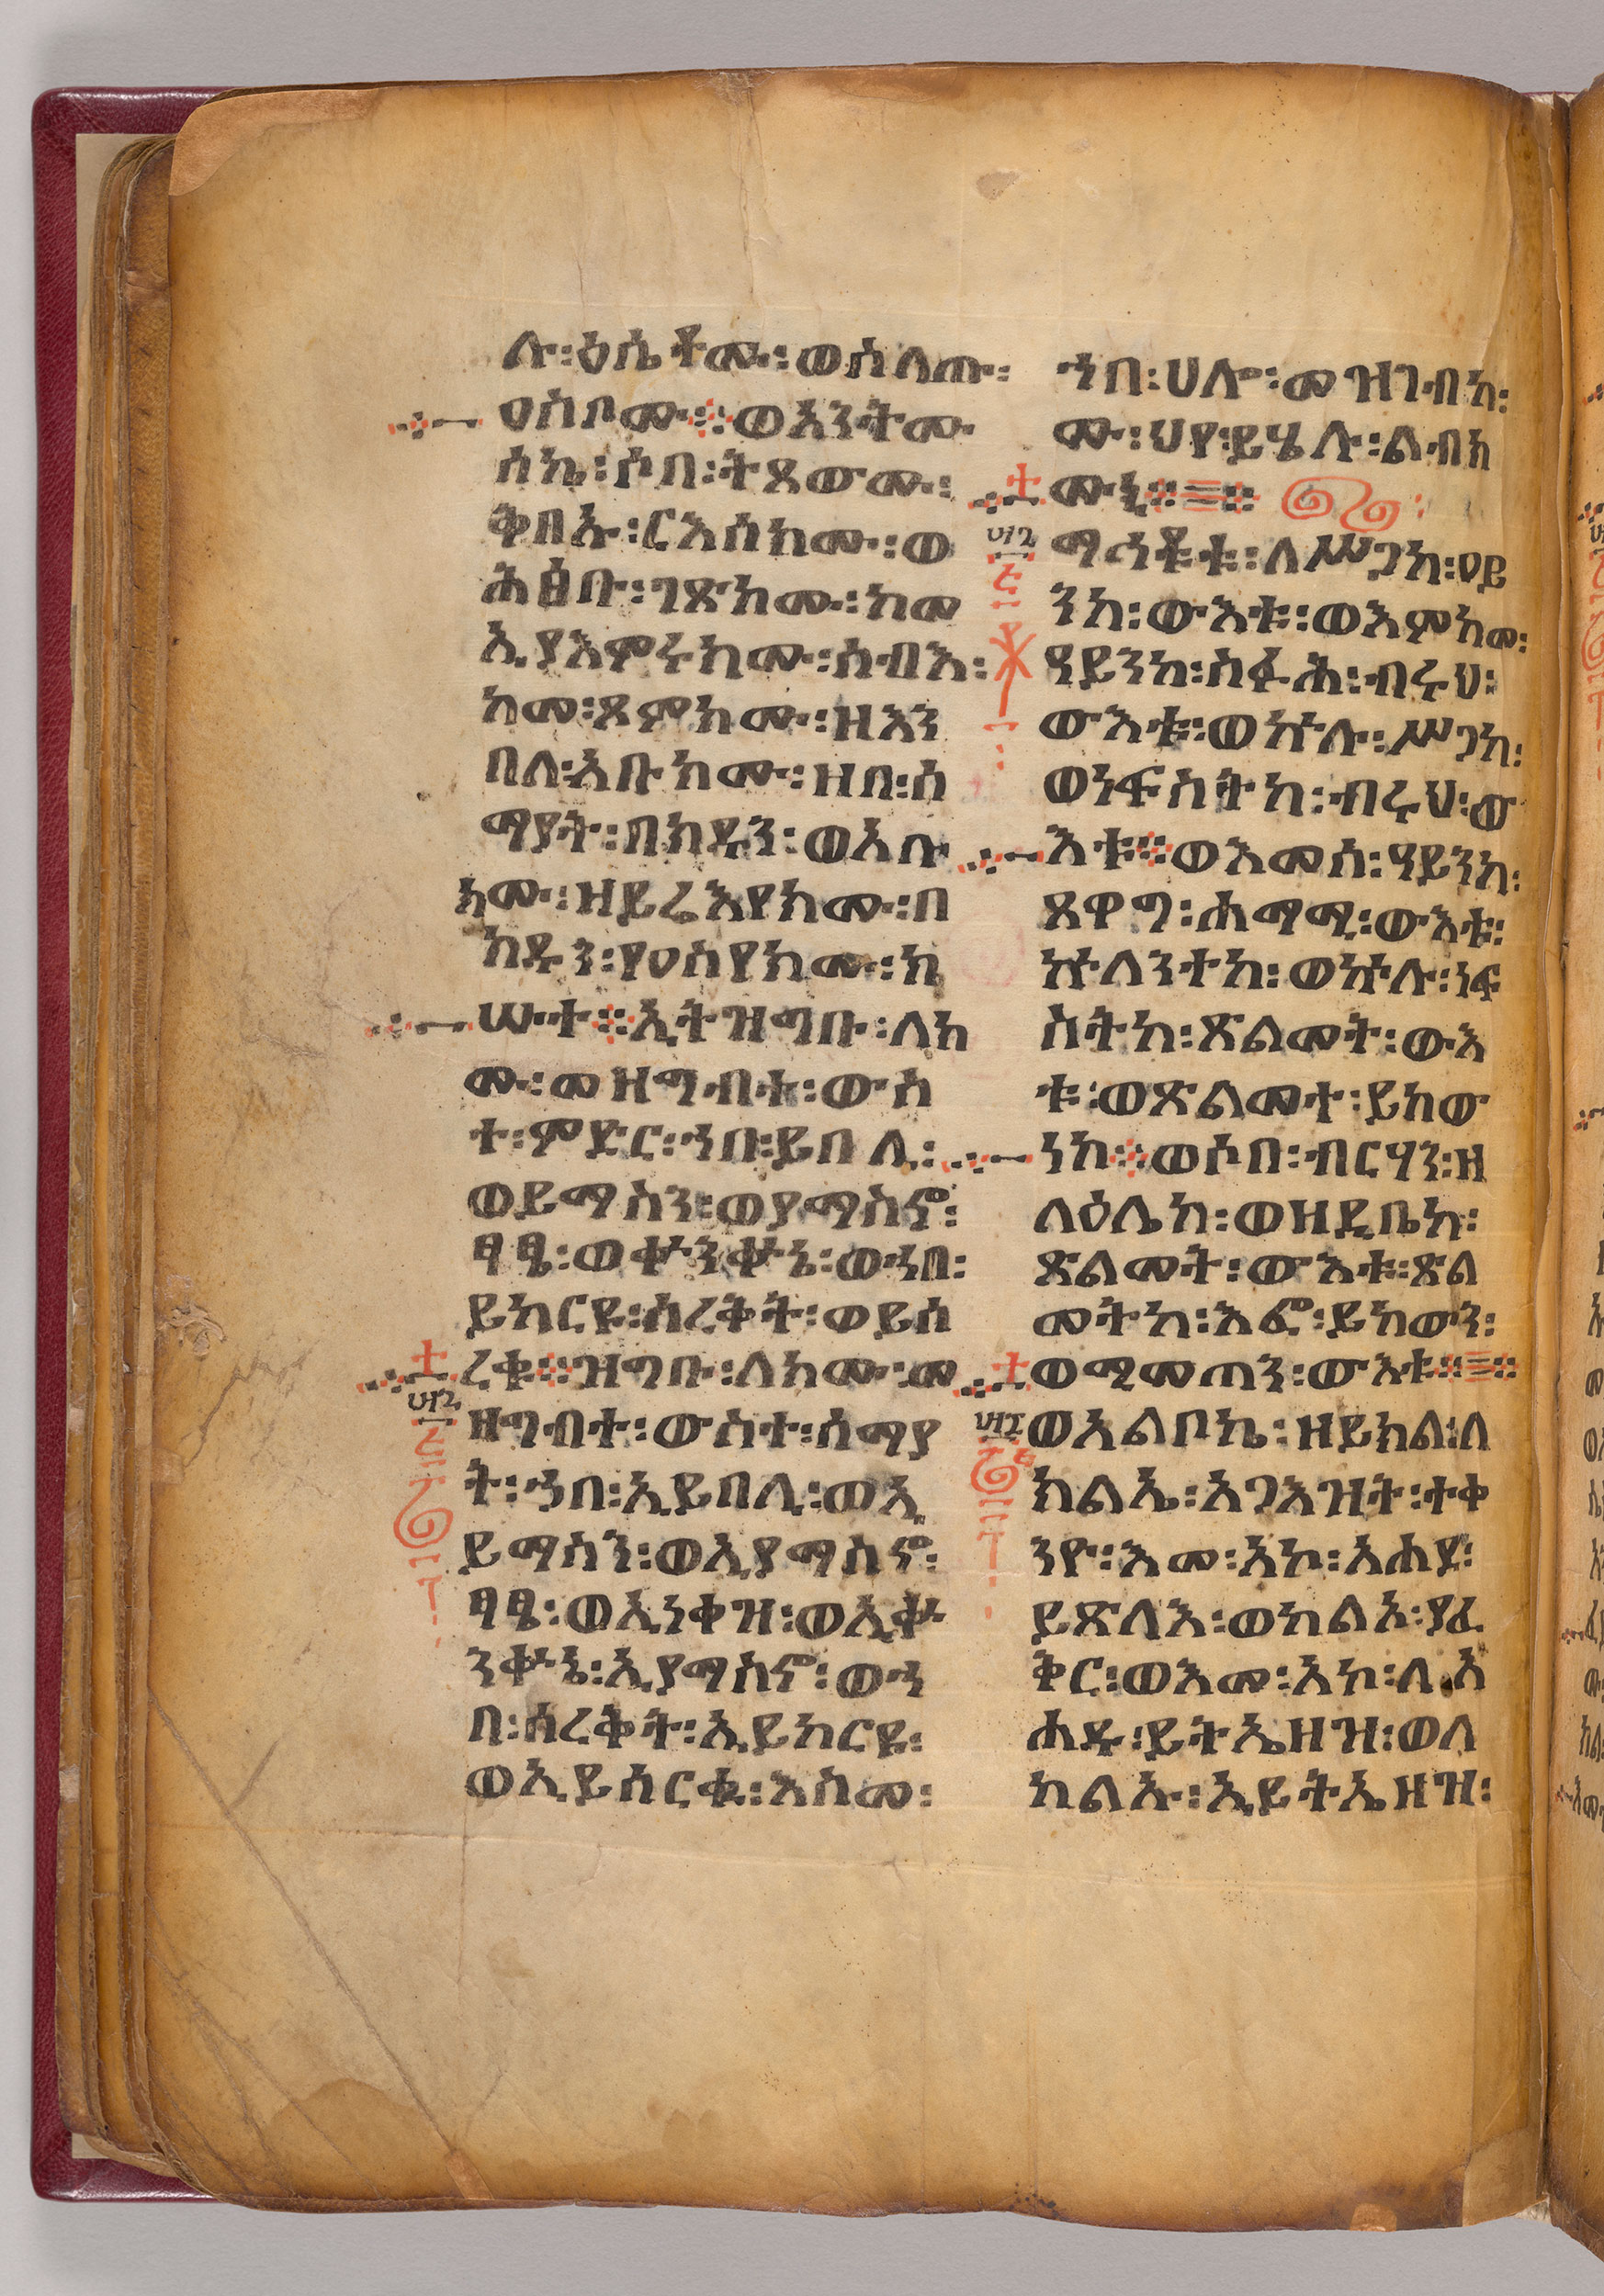 ሉ፡ዕሴቶሙ፡ወሰለጡ፡
ዐስቦሙ፨ወአንትሙ
ሰኬ፡ሶበ፡ትጸውሙ፡
ቅብኡ፡ርእስክሙ፡ወ
ሕፅቡ፡ገጽክሙ፡ከመ
ኢያእምሩክሙ፡ሰብእ፡
ከመ፡ጾምክሙ፡ዘእን
በለ፡አቡክሙ፡ዘበ፡ሰ
ማያት፡በክዱን፡ወአቡ
ክሙ፡ዝይሬእየክሙ፡በ
ክዱን፡የዐስየክሙ፡ክ
ሡተ፨ኢትዝግቡ፡ለክ
ሙ፡መዝግብተ፡ውስ
ተ፡ምድር፡ኀበ፡ይበሊ፡
ወይማስን፡ወያማስኖ፡
ፃፄ፡ወቍንቍኔ፡ወኀበ፡
ይከርዩ፡ሰረቅት፡ወይሰ
ረቁ፨ዝግቡ፡ለክሙ፡መ
ዘግብተ፡ውስተ፡ሰማያ
ት፡ኀበ፡ኢይበሊ፡ወኢ
ይማስን፡ወኢያማስኖ፡
ፃፄ፡ወኢነቀዝ፡ወኢቍ
ንቍኔ፡ኢያማስኖ፡ወኀ
በ፡ሰረቅት፡ኢይከርዩ፡
ወኢይሰርቁ፡እስመ፡
ኀበ፡ሀሎ፡መዝገብክ፡
ሙ፡ህየ፡ይሄሉ፡ልብክ
ሙኒ፨
ማኅቶቱ፡ለሥጋከ፡ዐይ
ንከ፡ውእቱ፡ወእምከመ፡
ዓይንከ፡ስፉሕ፡ብሩህ፡
ውእቱ፡ወኵሉ፡ሥጋከ፡
ወነፍስትከ፡ብሩህ፡ው
እቱ፨ወእመሰ፡ዓይንከ፡
ጸዋግ፡ሐማሚ፡ውእቱ፡
ኵለንተከ፡ወኵሉ፡ነፍ
ስትከ፡ጽልመት፡ውእ
ቱ፡ወጽልመተ፡ይከው
ነከ፨ወሶበ፡ብርሃን፡ዘ
ላዕሌከ፡ወዘዲቤከ፡
ጽልመት፡ውእቱ፡ጽል
መትከ፡እፎ፡ይከውን፡
ወሚመጠን፡ውእቱ፨
ወአልቦኬ፡ዘይክል፡ለ
ክልኤ፡አጋእዝት፡ተቀ
ንዮ፡እመ፡አኮ፡አሐደ፡
ይጽለእ፡ወካልኦ፡ያፈ
ቅር፡ወእመ፡አኮ፡ለአ
ሐዱ፡ይትኤዘዝ፡ወለ
ካልኡ፡ኢይትኤዘዝ፡